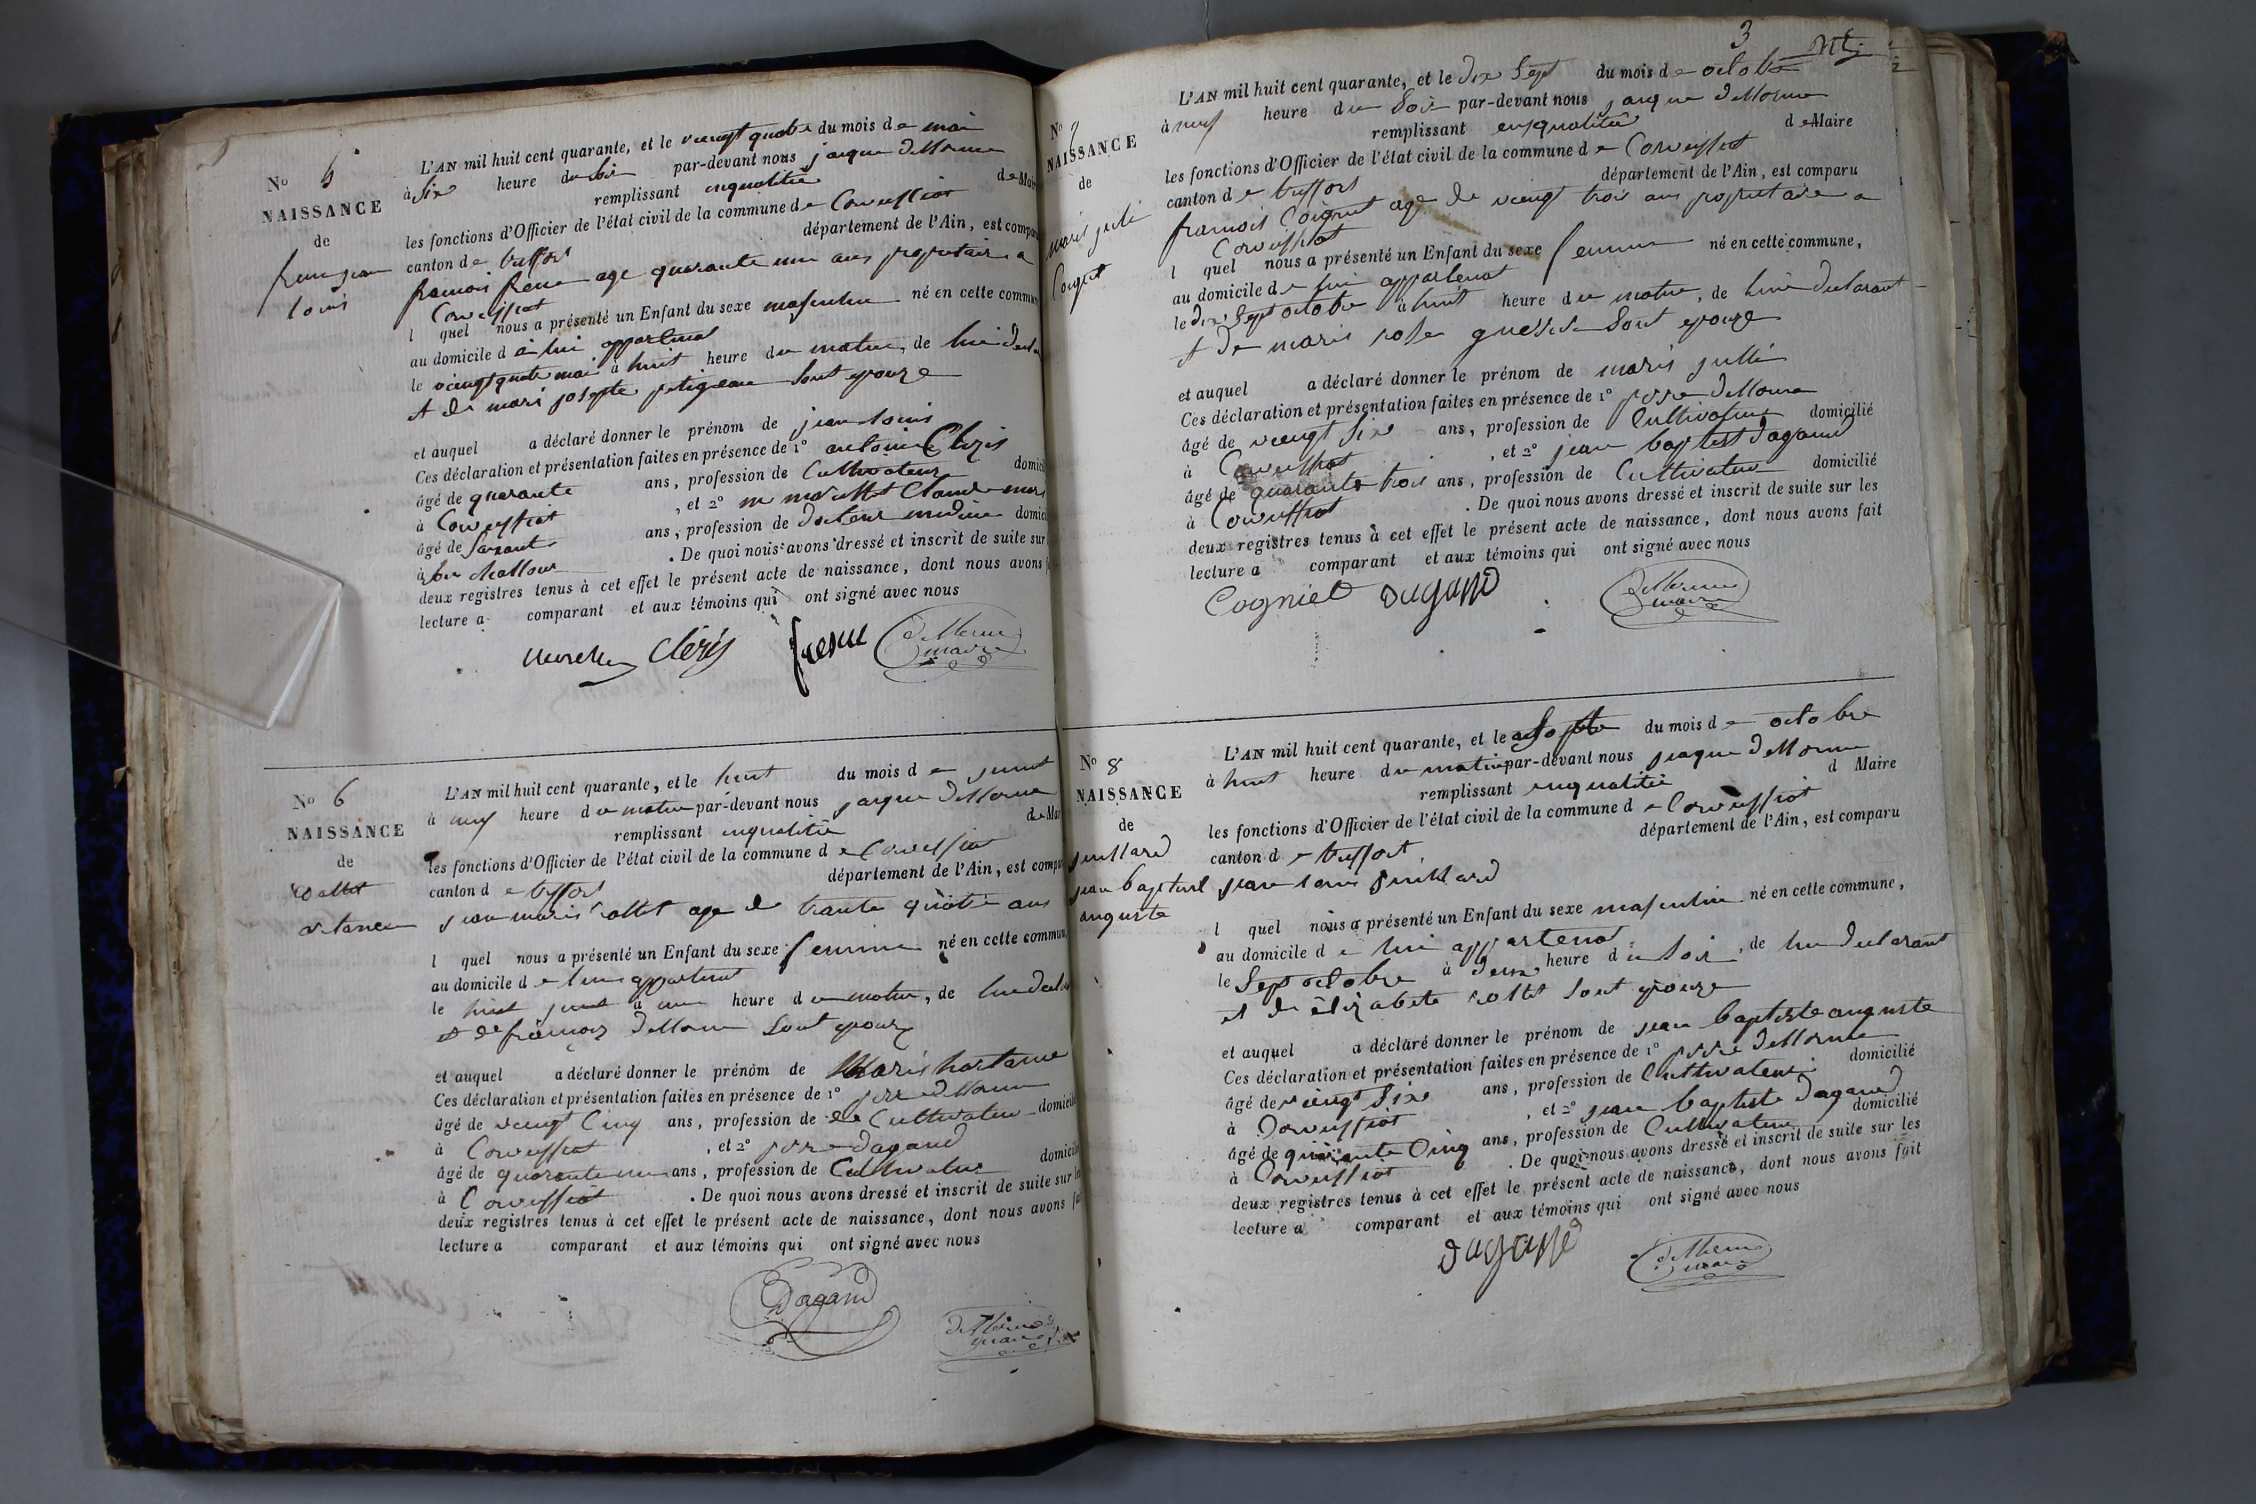 No 5
NAISSANCE
de
frene jean
louis
L'AN mil huit cent quarante, et le vingt quatre du mois de mai
à six heure du soir par-devant nous jaque delorme
remplissant enqualitée de Mai
les fonctions d'Officier de l'état civil de la commune de Corveissiat
canton de treffort département de l'Ain, est compa
francois frene age quarante un ans proprietaire a
Corveissiat
l quel nous a présenté un Enfant du sexe masculin né en cette commun
au domicile d à lui appartenat
le vingt quatre mai à huit heure du matin, de lui decl
et de mari josepte petigean sont epouze
et auquel a déclaré donner le prénom de jean louis
Ces déclaration et présentation faites en présence de 1° antoine Clézis
âgé de quarante ans, profession de Cultivateur domici
à Corveissiat, et 2° Claude mari
âgé de soixante ans, profession de docteur medecin domici
à . De quoi nous avons dressé et inscrit de suite sur
deux registres tenus à cet effet le présent acte de naissance, dont nous avons
lecture a comparant et aux témoins qui ont signé avec nous
Clézis frene delorme
maire
No 6
NAISSANCE
de
Collet
L'AN mil huit cent quarante, et le huit du mois de juint
à neuf heure du matin par-devant nous jaque delorme
remplissant enqualitée de Mai
les fonctions d'Officier de l'état civil de la commune de Corveissiat
canton de treffort département de l'Ain, est compa
jean marie collet age de trante quatre ans
l quel nous a présenté un Enfant du sexe feminin né en cette commun
au domicile de lui appartenat
le huit juint à une heure du matin, de lui decl
et de françoiz delorme sont epouze
et auquel a déclaré donner le prénom de Marie
Ces déclaration et présentation faites en présence de 1° pierre delorme
âgé de vingt Cinq ans, profession de Cultivateur domicil
à Corveissiat, et 2° pierre dagand
âgé de quarante un ans, profession de Cultivateur domicil
à Corveissiat . De quoi nous avons dressé et inscrit de suite sur
deux registres tenus à cet effet le présent acte de naissance, dont nous avons
lecture a comparant et aux témoins qui ont signé avec nous
Dagand
delorme
maire
3
No 7
NAISSANCE
de
marie juli
Cogniet
L'AN mil huit cent quarante, et le dix sept du mois de octobre
à neuf heure du soir par-devant nous jaque delorme
remplissant enqualitée de Maire
les fonctions d'Officier de l'état civil de la commune de Corveissiat
canton de treffort département de l'Ain, est comparu
francois Coignet age de vingt trois ans proprietaire a
Corveissiat
l quel nous a présenté un Enfant du sexe feminin né en cette commune,
au domicile de lui appartenat
le dix sept octobre à huit heure du matin, de lui declarant
et de marie rose sont epouze
et auquel a déclaré donner le prénom de marie julli
Ces déclaration et présentation faites en présence de 1° pierre delorme
âgé de vingt six ans, profession de Cultivateur domicilié
à Corveissiat, et 2° jean baptist dagand
âgé de quarante trois ans, profession de Cultivateur domicilié
à Corveissiat . De quoi nous avons dressé et inscrit de suite sur les
deux registres tenus à cet effet le présent acte de naissance, dont nous avons fait
lecture a comparant et aux témoins qui ont signé avec nous
Cogniet Dagand delorme
maire
No 8
NAISSANCE
de
juillard
jean baptiste
auguste
L'AN mil huit cent quarante, et le sept du mois de octobre
à huit heure du matin par-devant nous jaque delorme
remplissant enqualitée d Maire
les fonctions d'Officier de l'état civil de la commune de Corveissiat
canton de treffort département de l'Ain, est comparu
jean louis juillard
l quel nous a présenté un Enfant du sexe masculin né en cette commune,
au domicile de lui appartenat
le sept octobre à deux heure du soir, de lui declarant
et de élizabete collet sont epouze
et auquel a déclaré donner le prénom de jean baptiste auguste
Ces déclaration et présentation faites en présence de 1° pierre delorme
âgé de vingt six ans, profession de Cultivateur domicilié
à Corveissiat, et 2° jean baptiste dagand
âgé de quarante Cinq ans, profession de Cultivateur domicilié
à Corveissiat . De quoi nous avons dressé et inscrit de suite sur les
deux registres tenus à cet effet le présent acte de naissance, dont nous avons fait
lecture a comparant et aux témoins qui ont signé avec nous
dagand delorme
maire